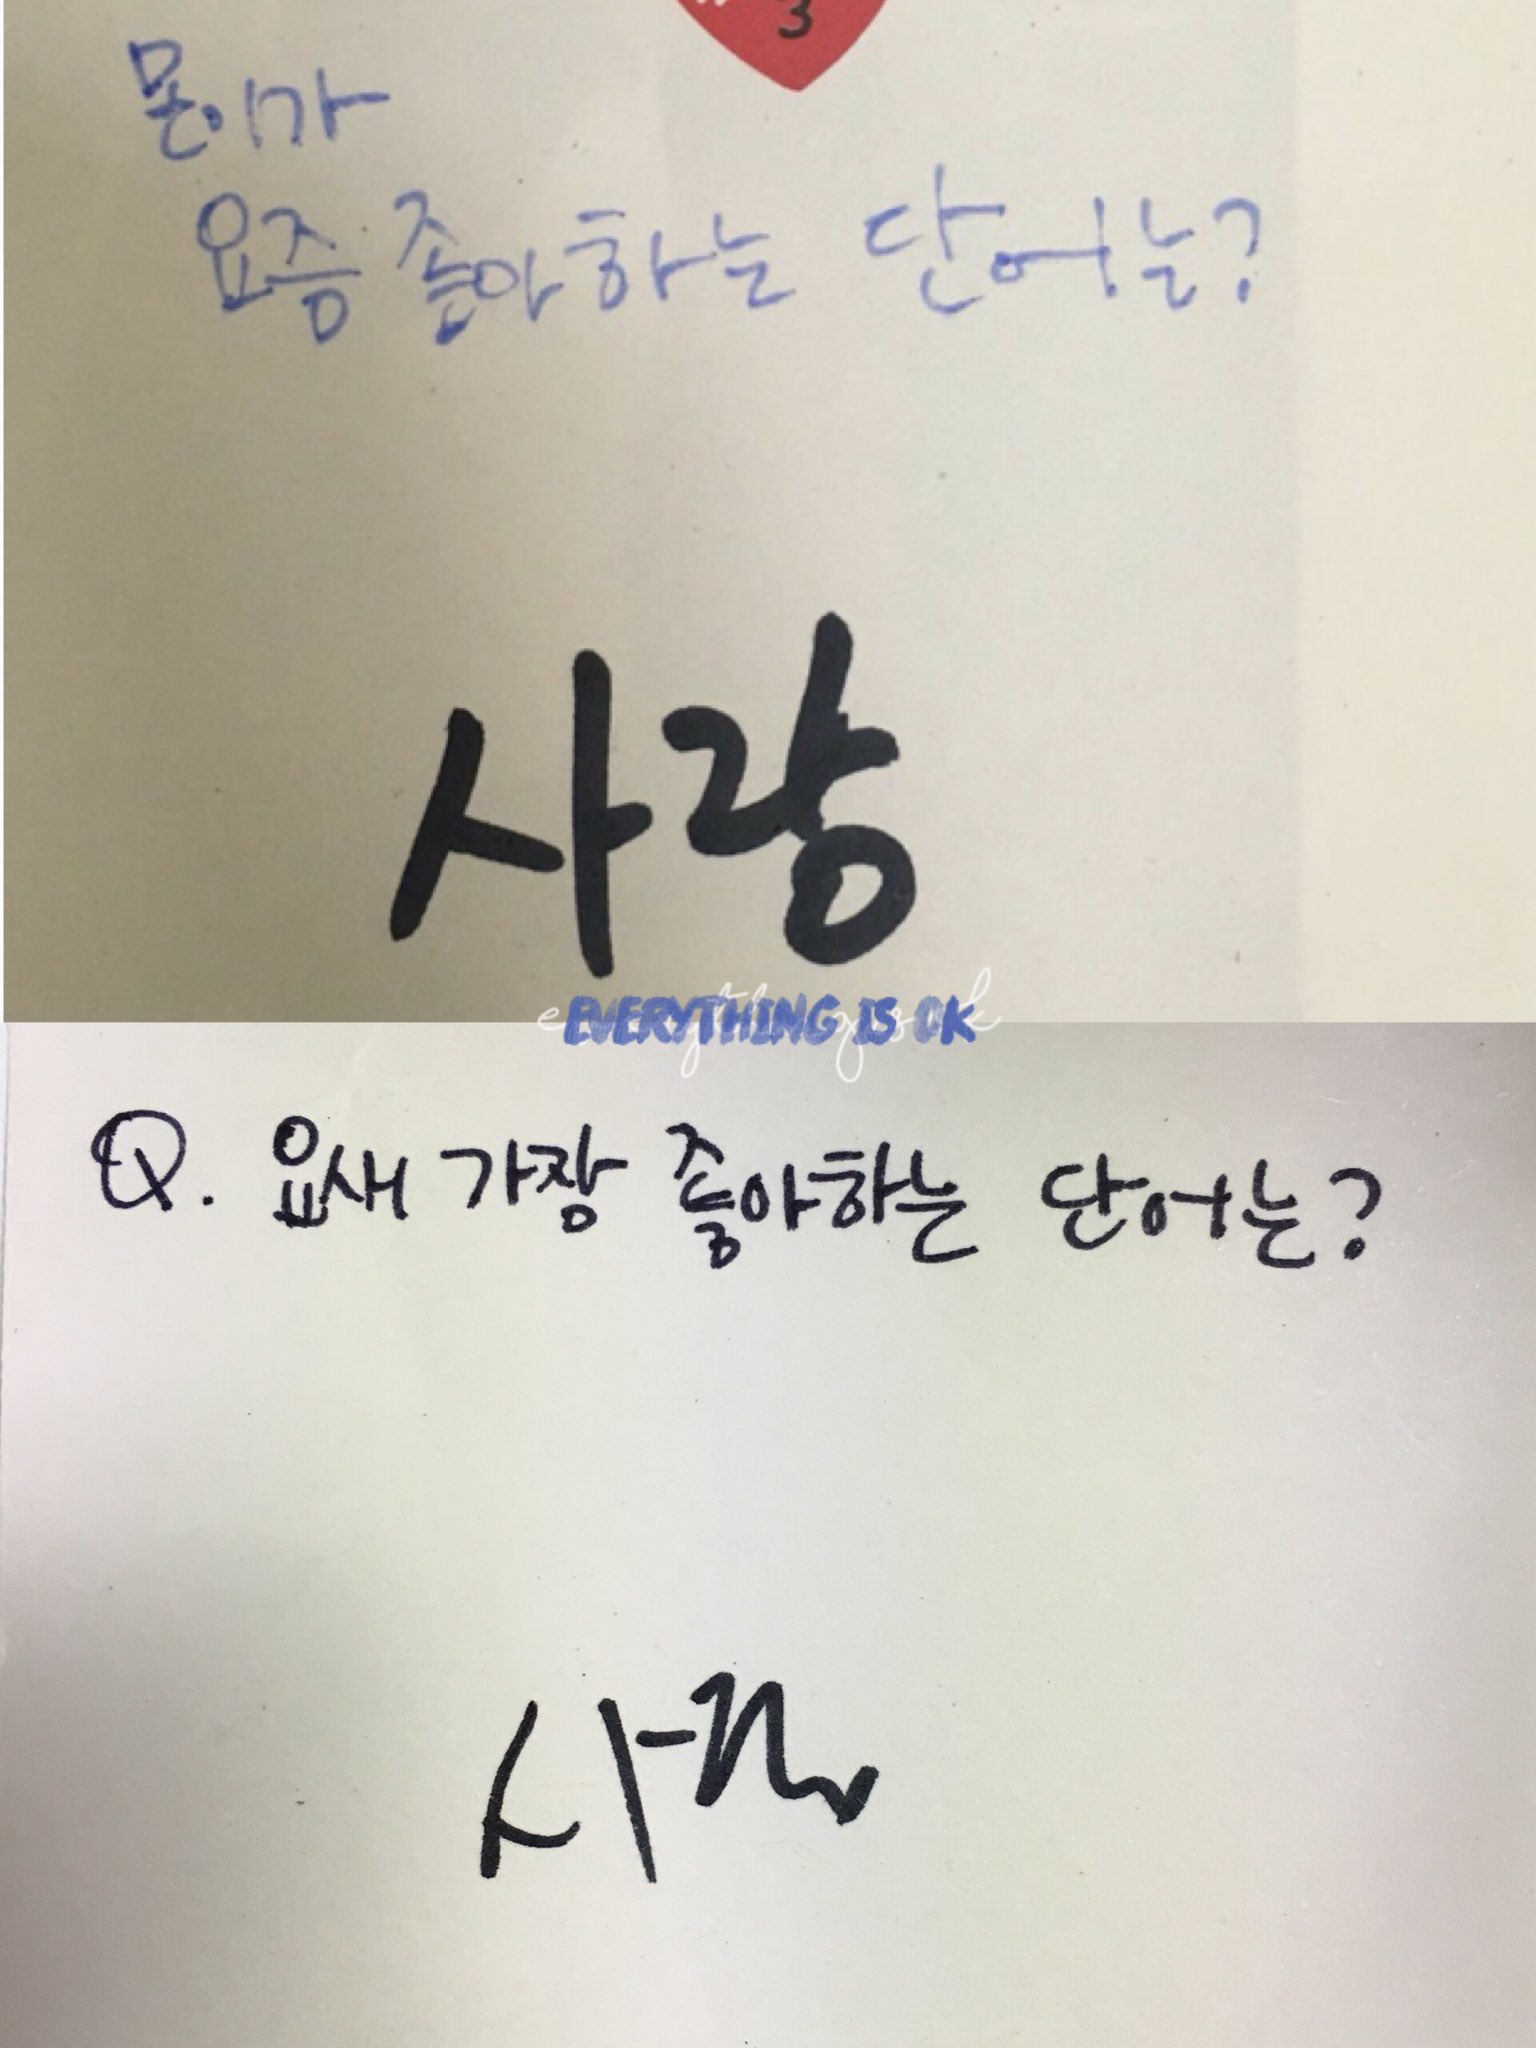 3
문이가
요즘 좋아하는 단어는?
사랑
EVERYTHING IS OK
everything is ok
Q. 요새 가장 좋아하는 단어는?